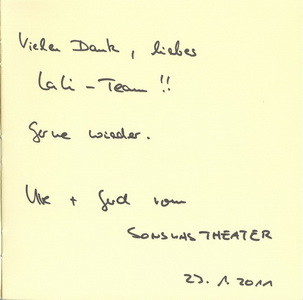 Vielen Dank, liebes
LaLi-Team!!
Gerne wieder.
Ute + Gud vom
SONSUNSTHEATER
23.1.2011